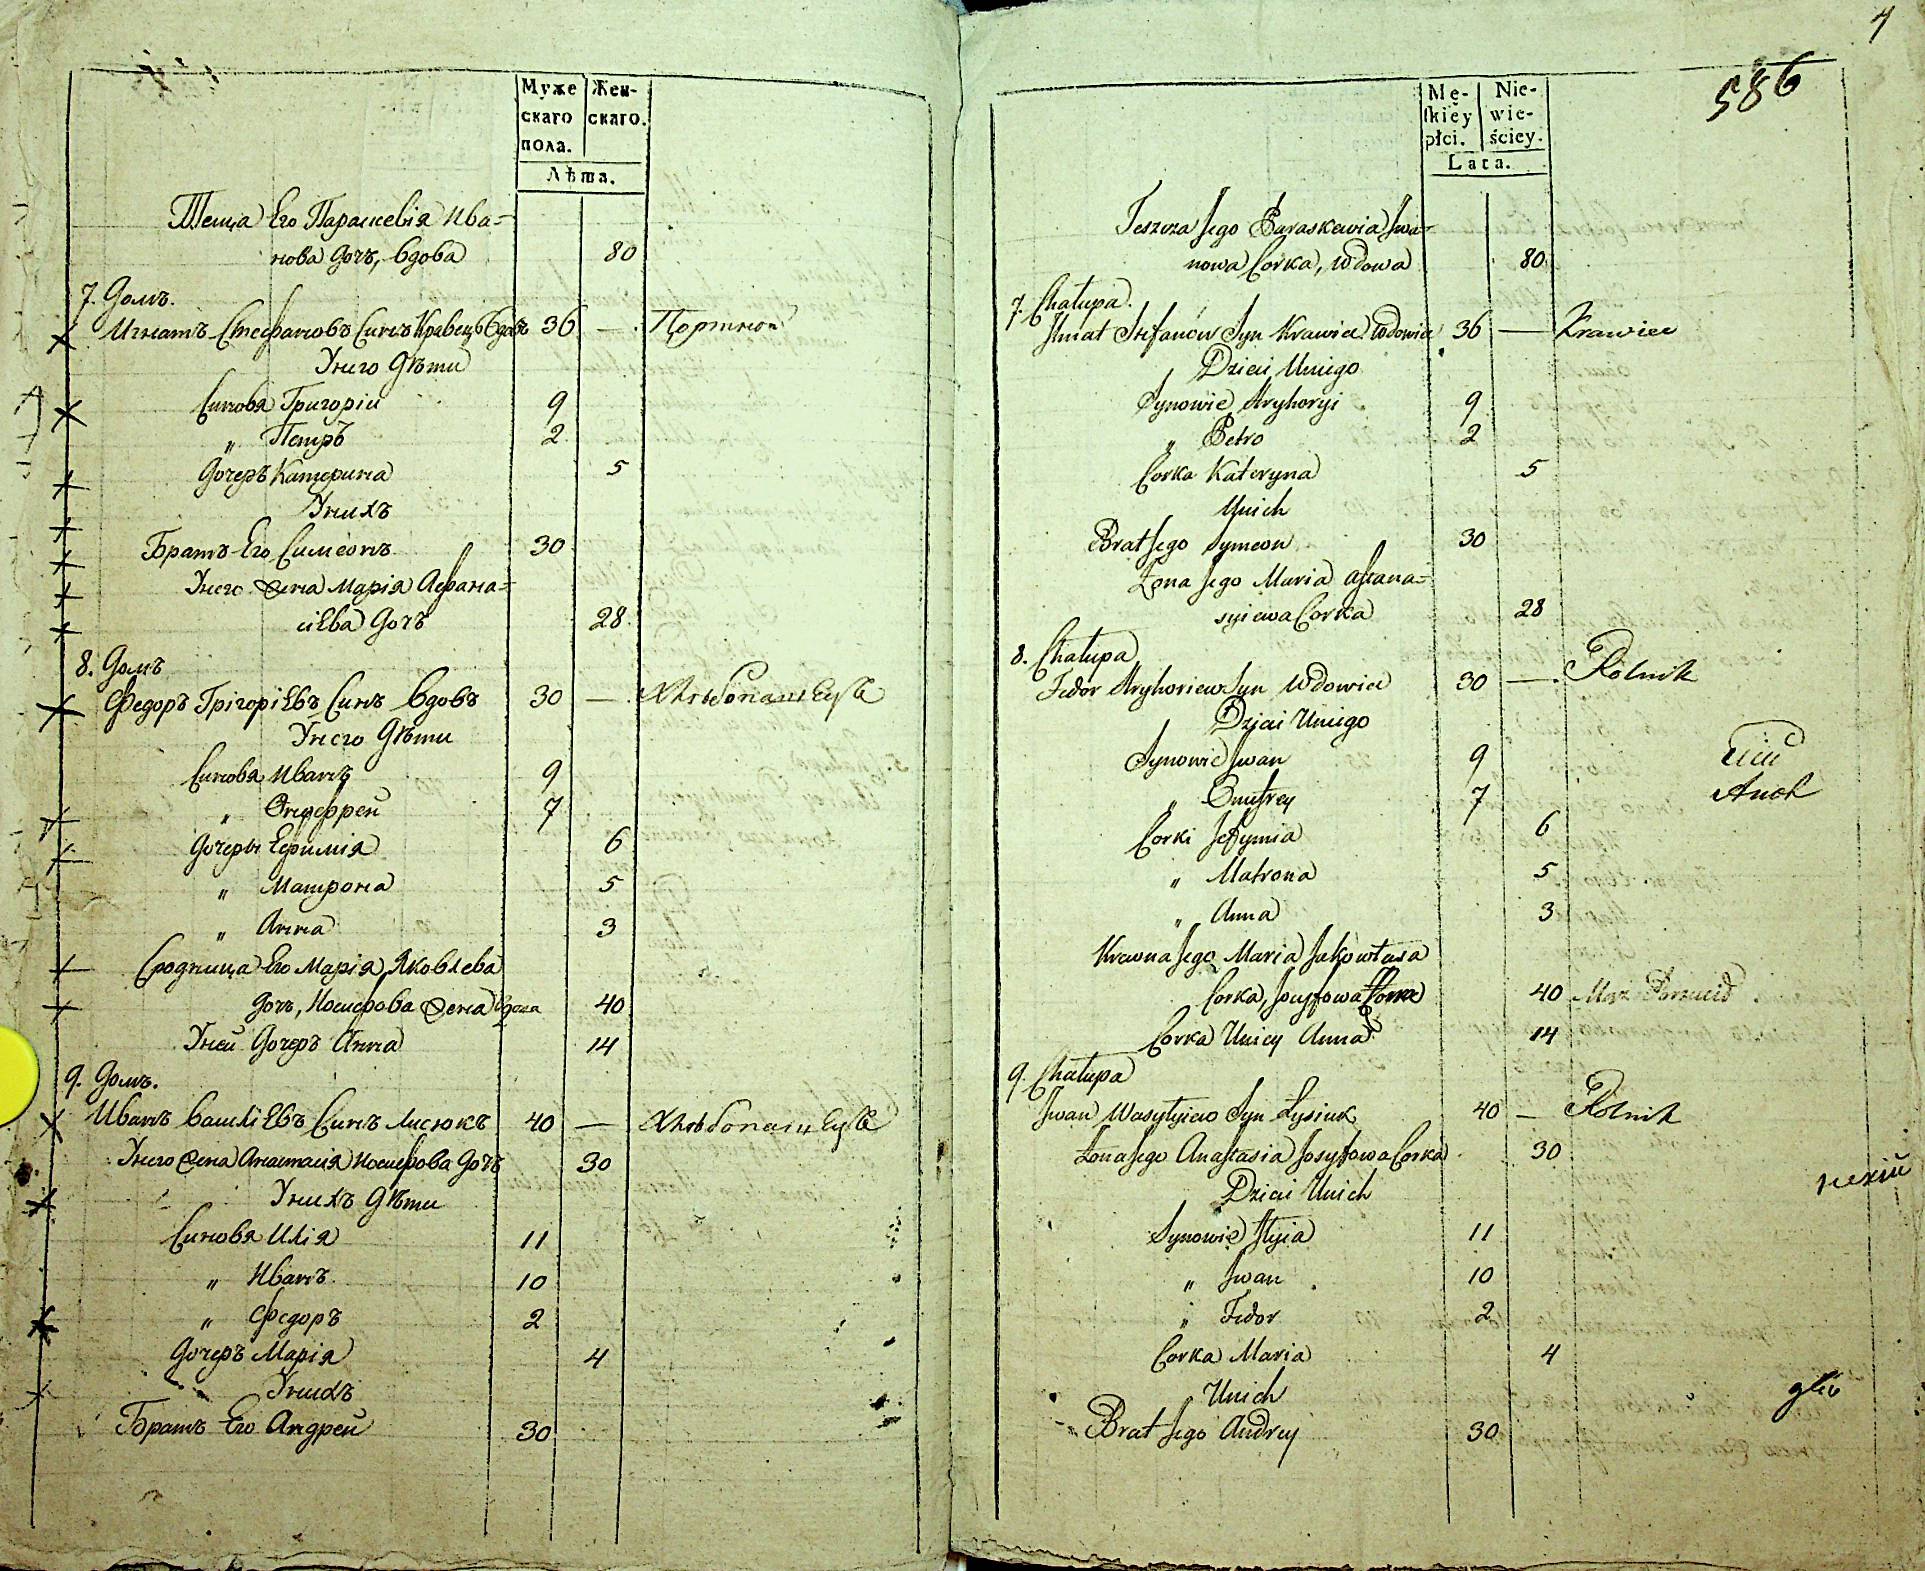 Муже
скаго
пола.
Жен-
скаго.
Лѣта.
Теща Его Параскевія Ива-
нова дочь, вдова 80
7. Домъ.
Игнатъ Стефановъ Синъ Кравецъ вдовъ 36 — Портной
У него дѣти
Синовя Григорій 9
„ Петръ 2
Дочеръ Катерина 5
У нихъ
Братъ Его Симеонъ 30
У него жена Марія Афана-
сіева дочъ 28
8. Домъ
Федоръ Грігоріевъ Синъ вдовъ 30 — Хлѣбопашецъ
У него дѣти
Синовя Иванъ 9
„ Онуфрей 7
Дочеры Ефимія 6
„ Матрона 5
„ Анна 3
Сродница Его Марія Яковлева
дочъ, Иосифова жена вдова 40
У ней Дочеръ Анна 14
9. Домъ.
Иванъ Василіевъ Синъ Лисюкъ 40 — Хлѣбопашецъ
У него жена Анастасія Иосифова дочъ 30
У нихъ дѣти
Синовя Илія 11
„ Иванъ 10
„ Федоръ 2
Дочеръ Марія 4
У нихъ
Братъ Его Андрей 30
4
586
Mę-
skiey
płci.
Nie-
wie-
ściey.
Lata.
Teszcza Jego Paraskewia Iwa-
nowa Corka, Wdowa 80
7. Chałupa.
Ihnat Stefanów Syn Krawiec Wdowiec 36 — Krawiec
Dzieci Uniego
Synowie Hryhoryi 9
„ Petro 2
Corka Kateryna 5
Unich
Brat Jego Symeon 30
Żona Jego Maria Afana-
syiewa Corka 28
8. Chałupa
Fedor Hryhoriew Syn Wdowiec 30 — Rolnik
Dzieci Uniego
Synowie Iwan 9
„ Onufrey 7
Corki Jefymia 6
„ Matrona 5
„ Anna 3
Krewna Jego Maria Jakowlewa
Corka, Josyfowa Żona 40
Corka Uniey Anna 14
9. Chałupa
Iwan Wasylyiew Syn Łysiuk 40 — Rolnik
Żona Jego Anastasia Josyfowa Corka 30
Dzieci Unich
Synowie Ilyia 11
„ Iwan 10
„ Fedor 2
Corka Maria 4
Unich
Brat Jego Andrey 30